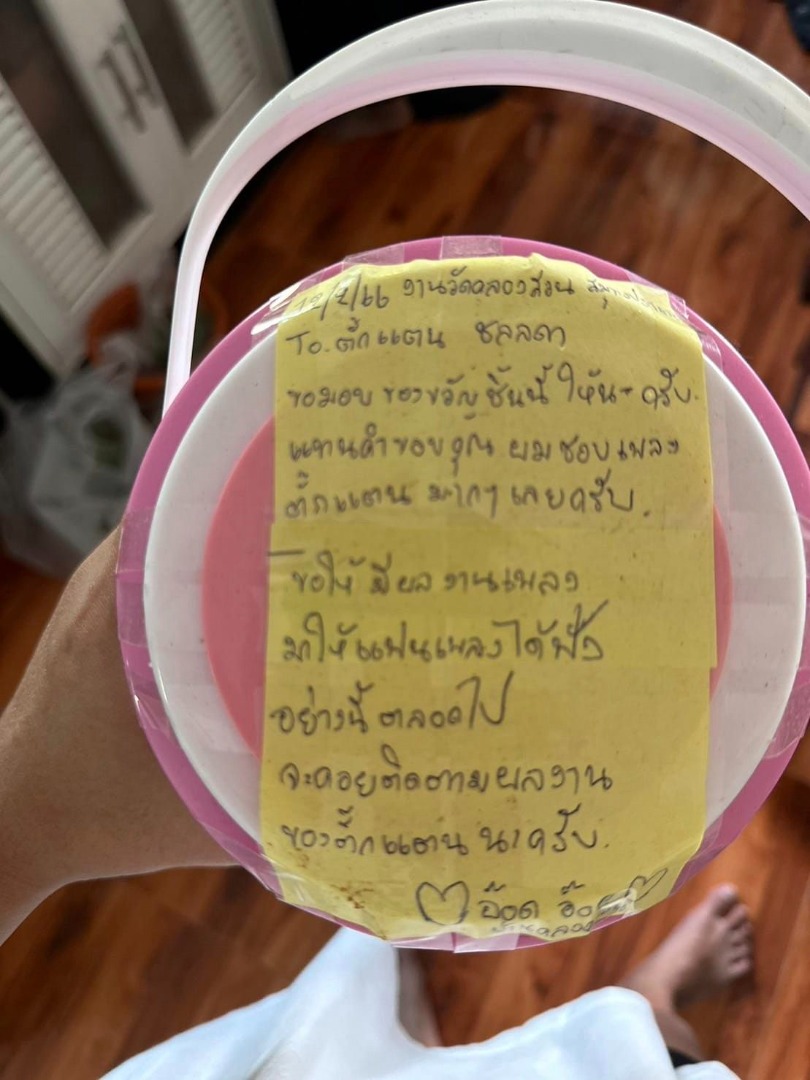 งานวัดคลองสวน สมุทรปราการ
To. ตั๊กแตน ชลลดา
ขอมอบของขวัญชิ้นนี้ ให้นะครับ.
แทนคำขอบคุณ ผมชอบเพลง
ตั๊กแตน มากๆ เลยครับ.
ขอให้ มีผลงานเพลง
มาให้แฟนเพลงได้ฟัง
อย่างนี้ ตลอดไป
จะคอยติดตามผลงาน
ของตั๊กแตน นะครับ.
อ๊อด